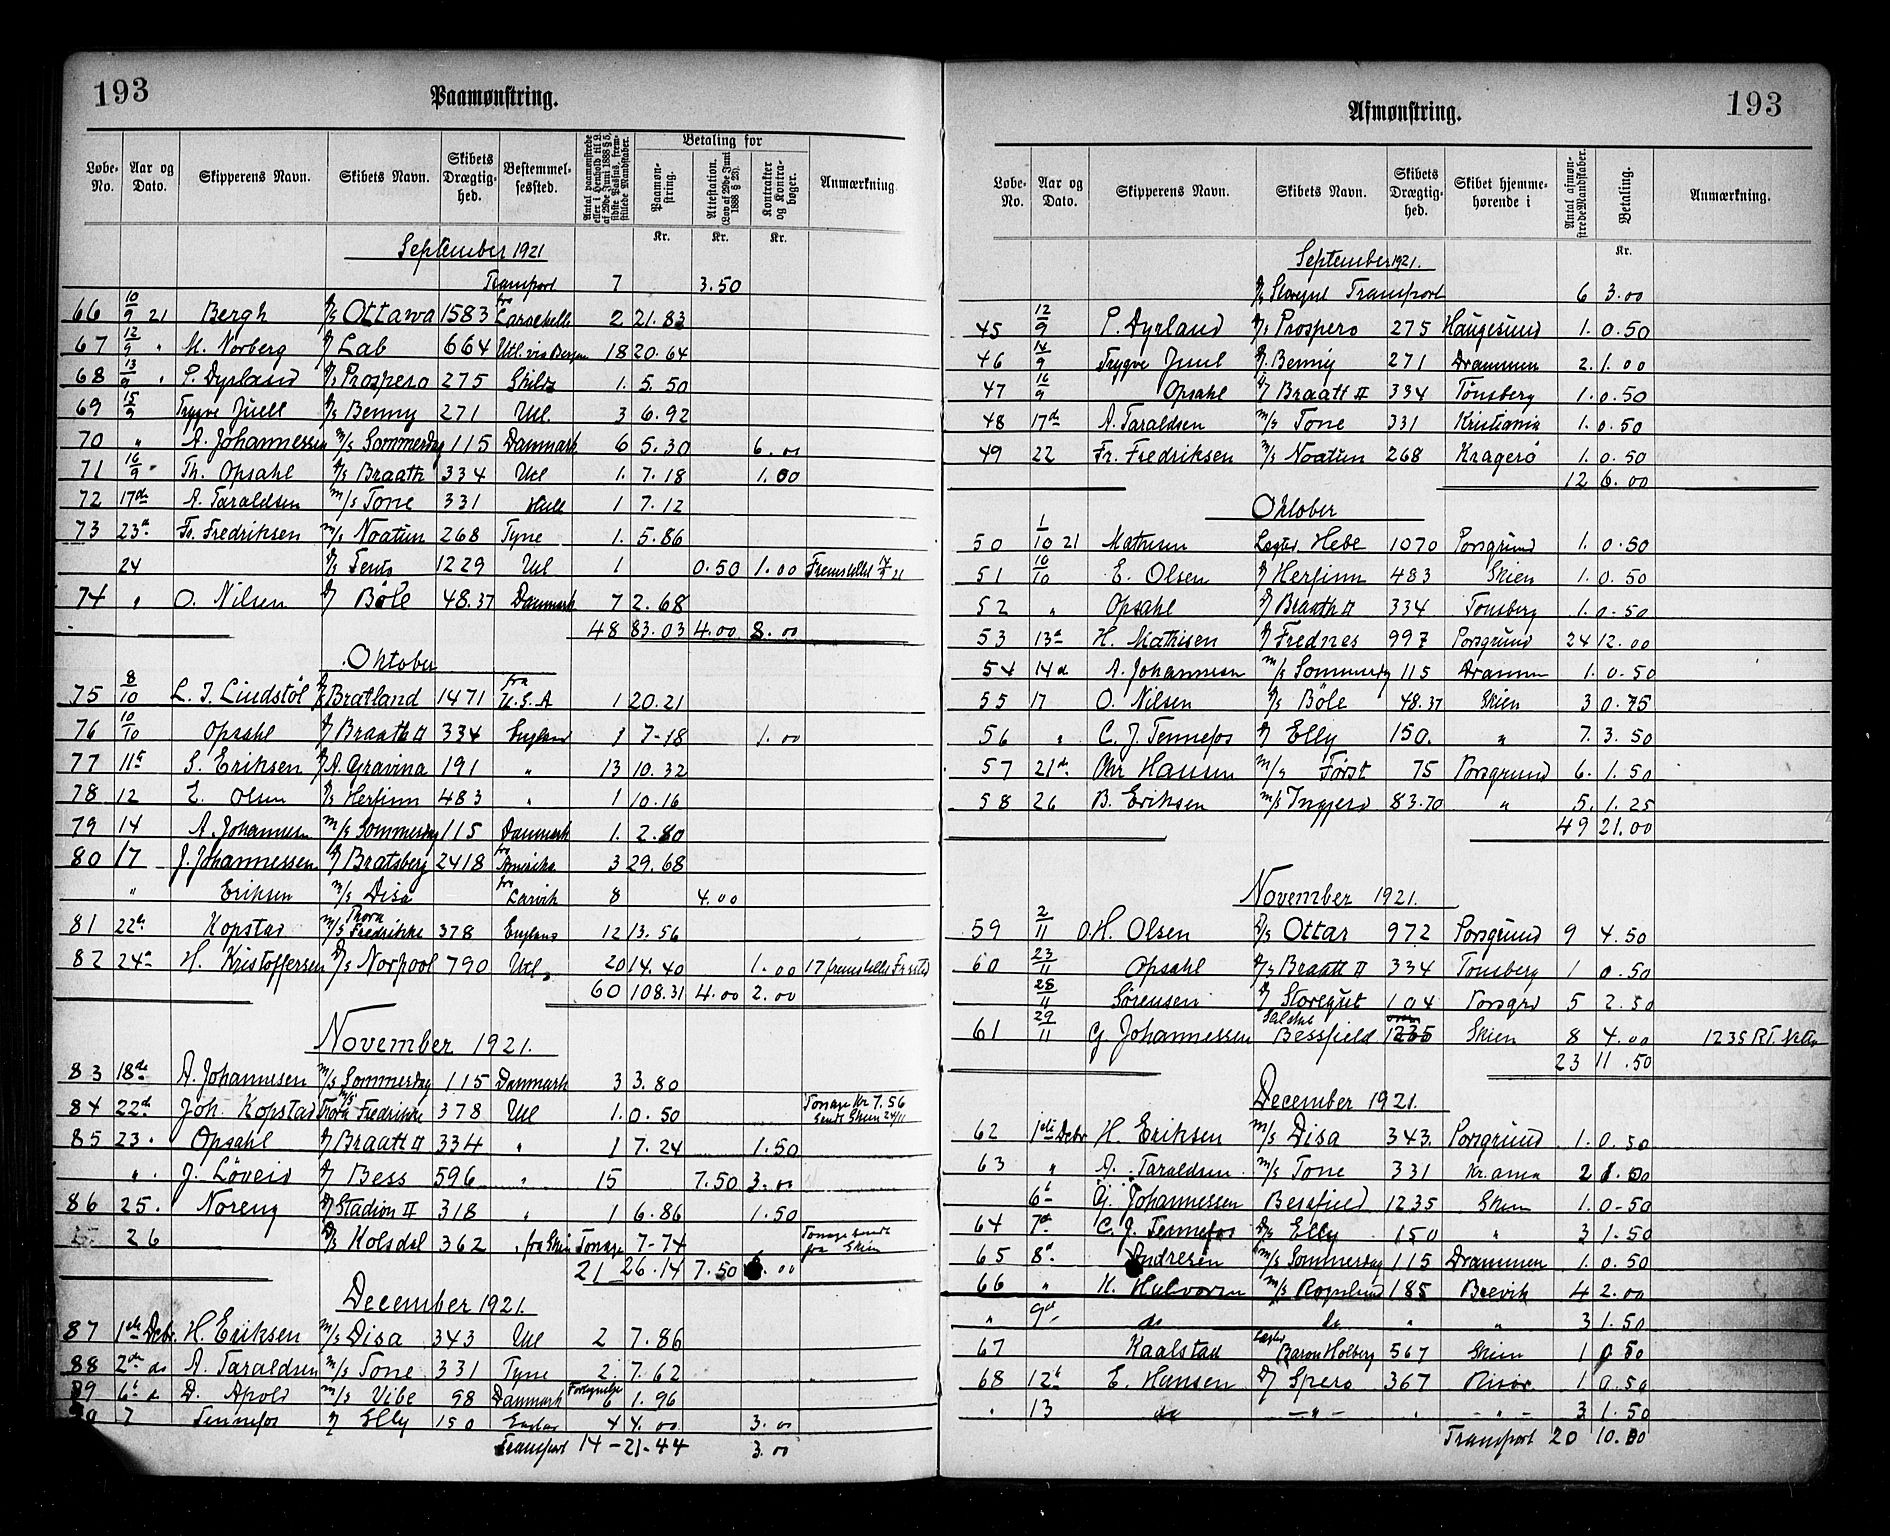 193
Paamønstring.
Løbe-No.	Aar og Dato.	Skipperens Navn.	Skibets Navn.	Skibets Drægtighed.	Bestemmelsessted.	Betaling for	Paamønstring.	Attestation. (Lov af 29de Juni 1888 § 23).	Kontrakter og Kontrabøger.	Anmærkning.
Kr.	Kr.	Kr.
September 1921
Transport 7 3.50
66 10/9 21 Bergh D/S Ottawa 1583 fra 2 21.83
67 12/9 " M. Norberg D/ Lab 664 Utl. via Bergen 18 20.64
68 13/9 " P. Dyrland D/s Prospero 275 Shilds 1. 5.50
69 15/9 Trygve Juell D/s Benny 271 Utl. 3 6.92
70 " A. Johannessen m/s Sommerdag 115 Danmark 6 5.30 6.00
71 16/9 " Th. Opsahl D/s Braath 334 Utl 1. 7.18 1.00
72 17de A. Taraldsen m/s Tone 331 Hull 1 7.12
73 23d Fr. Fredriksen m/s Noatun 268 Tyne 1. 5.86
24 D/ Fents 1229 Utl 1 0.50 1.00 Fremstillet
74 " O. Nilsen D/ Böle 48.37 Danmark 7 2.68
48 83.03 4.00 8.00
Oktober
75 8/10 L. T. Lindstöl D/s Bratland 1471 fra U.S.A 1 20.21
76 10/10 Opsahl D/ Braath II 334 England 1 7-18 1.00
77 11te S. Eriksen D/ A. Gravina 191 " 13 10.32
78 12 E. Olsen D/s Herfinn 483 " 1 10.16
79 14 A. Johannesen m/s Sommerdag 115 Danmark 1. 2.80
80 17 J. Johannessen D/ Bratsberg 2418 fra Amerika 3 29.68
" Eriksen m/s Disa fra Larvik 8 4.00
81 22de Kopstad m/s Thora Fredrikke 378 England 12 13.56
82 24de H. Kristoffersen D/s Norpool 790 Utl, 20 14.40 1.00 17 fremstilles
60 108.31 4.00 2.00
November 1921.
83 18de A. Johannesen m/s Sommerdag 115 Danmark 3 3.80
84 22d Joh. Kopstad m/s Thora Fredrikke 378 Utl 1. 0.50 Tonage Kr 7.56 sendt Skien 24/11
85 23. Opsahl D/ Braatt II 334 " 1 7.24 1.50
" J. Löveid D/ Bess 596 " 15 7.50 3.00
86 25. Noreng D/ Stadion II 318 " 1 6.86 1.50
26 D/s Kolsdal 362 " fra Skien Tonage 7-74 Tonage sendt fra Skien
21 26.14 7.50 6.00
December 1921.
87 1ste Debr. H. Eriksen m/s Disa 343 Utl 2 7.86
88 2den do A. Taraldsen m/s Tone 331 Tyne 2. 7.62
89 6te do D. Apold m/s Vibe 98 Danmark 6 1.96
90 7 Tennefos D/ Elly 150 4 4.00 3.00
Transport 14 - 21-44 3.00
Afmønstring.
193
Løbe-No.	Aar og Dato.	Skipperens Navn.	Skibets Navn.	Skibets Drægtighed.	Skibet hjemmehørende i	Antal afmønstrede Mandskaber.	Betaling.	Anmærkning.
Kr.
September 1921.
D/s Storegut Transport 6 3.00
45 12/9 P. Dyrland D/s Prospero 275 Haugesund 1. 0.50
46 14/9 Trygve Juul D/. Benny 271 Drammen 2. 1.00
47 16/9 Opsahl D/ Braatt II 334 Tönsberg 1. 0.50
48 17de A. Taraldsen m/s Tone 331 Kristiania 1. 0.50
49 22 Fr. Fredriksen m/s Noatun 268 Kragerö 1. 0.50
12 6.00
Oktober
50 1/10 21 Mathisen Hebe 1070 Porsgrund 1. 0.50
51 10/10 E. Olsen D/ Herfinn 483 Skien 1. 0.50
52 " Opsahl D/ Braath II 334 Tönsberg 1. 0.50
53 13de H. Mathisen D/ Frednes 997 Porsgrund 24 12.00
54 14d A. Johannesen m/s Sommerdg 115 Drammen 1. 0.50
55 17 O. Nilsen D/s Böle 48.37 Skien 3 0.75
56 " C. J. Tennefos D/ Elly 150. " 7. 3.50
57 21de. Chr Hansen m/s Først 75 Porsgrund 6. 1.50
58 26 B. Eriksen m/s Ingjerd 83.70 " 5. 1.25
49 21.00
November 1921.
59 2/11 O. H. Olsen D/s Ottar 972 Porsgrund 9 4.50
60 23/11 Opsahl D/s Braatt II 334 Tönsberg 1 0.50
28/11 Sörensen D/ Storegut 104 Porsgrd 5 2.50
61 29/11 G. Johannessen Bessfield 1235 Skien 8 4.00 1235 R.T. Netto
23 11.50
December 1921.
62 1ste Debr H. Eriksen m/s Disa 343. Porsgrund 1. 0.50
63 " A. Taraldsen m/s Tone 331 Kr.ania 2 1.00
6te G. Johannessen Bessfield 1235 Skien 1. 0-50
64 7de C. J. Tennefos D/s Elly 150 " 3 1.50
65 8d. Andresen m/s Sommerdag 115 Drammen 1. 0.50
66 " K. Halvorsen m/s 185 Brevik 4 2.00
" 9de do do " " 3 1.50
67 Kaalstad Baron Holberg 567 Skien 1 0.50
68 12te E. Hansen D/ Spero 367 Risör 1. 0.50
" 13 do - " - " - " - 3 1.50
Transport 20 10.00